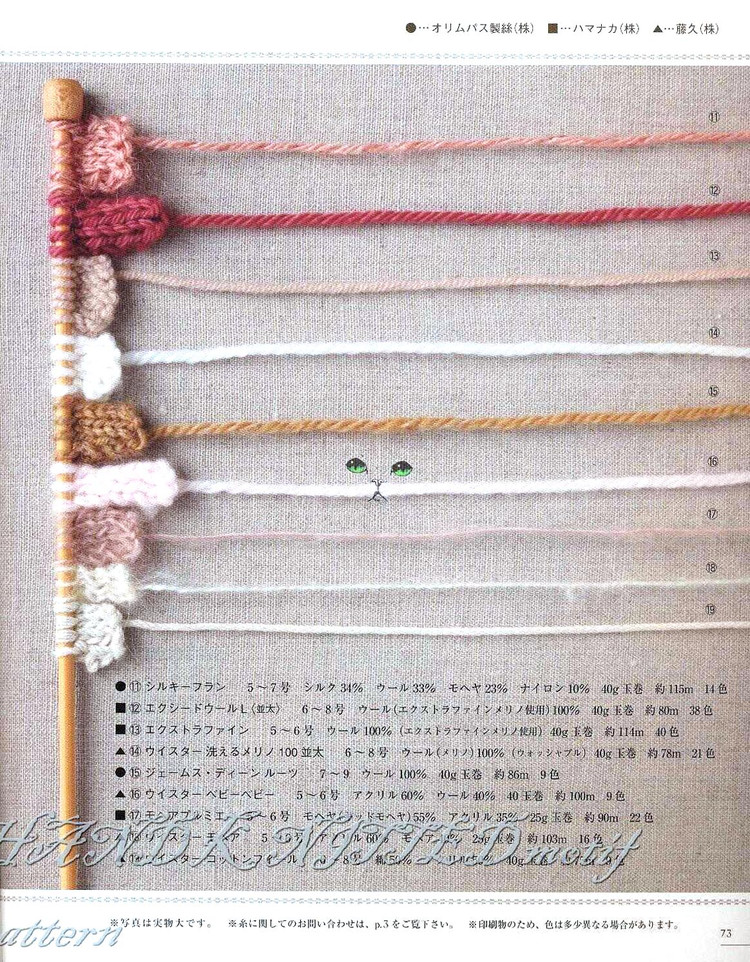 ●…オリムパス製絲(株) ■…ハマナカ(株) ▲…藤久(株)
⑪
⑫
⑬
⑭
⑮
⑯
⑰
⑱
⑲
●⑪シルキーフラン 5～7号 シルク34% ウール33% モヘヤ23% ナイロン10% 40g玉巻 約115m 14色
■⑫エクシードウールL〈並太〉 6～8号 ウール(エクストラファインメリノ使用)100% 40g玉巻 約80m 38色
■⑬エクストラファイン 5～6号 ウール100%(エクストラファインメリノ使用) 40g玉巻 約114m 40色
▲⑭ウイスター洗えるメリノ100並太 6～8号 ウール(メリノ)100%(ウォッシャブル) 40g玉巻 約78m 21色
●⑮ジェームス・ディーンルーツ 7～9 ウール100% 40g玉巻 約86m 9色
▲⑯ウイスターベビーベビー 5～6号 アクリル60% ウール40% 40玉巻 約100m 9色
■⑰ 5～6号 55% アクリル35% 25g玉巻 約90m 22色
60% 25g玉巻 約103m 16色
8号 綿50% 40g
HANDKNITTED motif
pattern
※写真は実物大です。 ※糸に関してのお問い合わせは、p.3をご覧下さい。 ※印刷物のため、色は多少異なる場合があります。
73